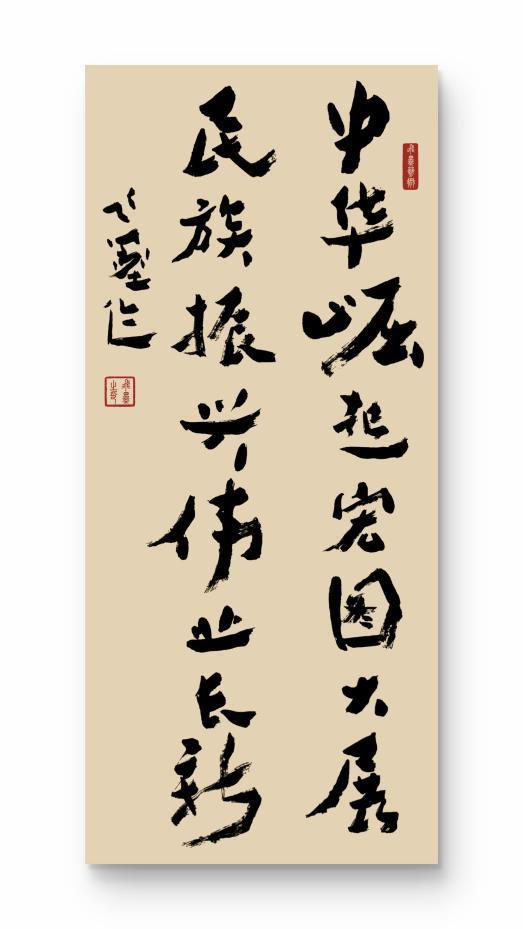 中华崛起宏图大展
民族振兴伟业长新
飞墨作